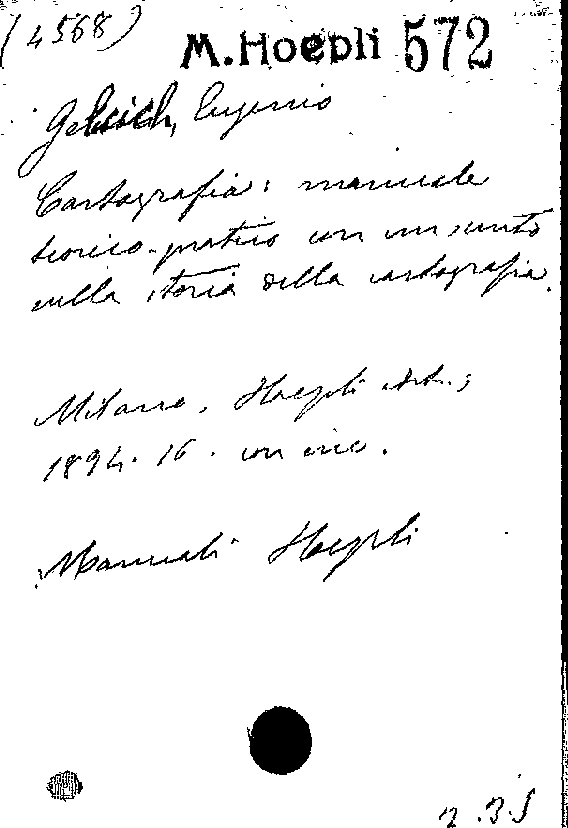 (4568)
M. Hoepli 572
Gelcich, Eugenio
Cartografia: manuale
teorico-pratico con un sunto
sulla storia della cartografia.
Milano, Hoepli edit.;
1894. 16. con inc.
Manuali Hoepli